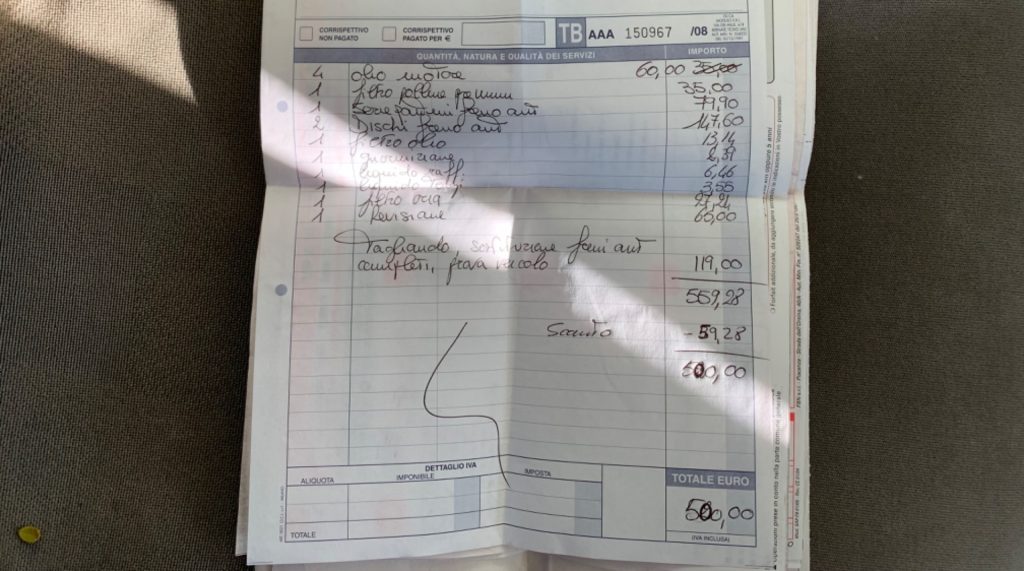 CORRISPETTIVO NON PAGATO
CORRISPETTIVO PAGATO PER €
TB AAA 150967 /08
QUANTITÀ, NATURA E QUALITÀ DEI SERVIZI IMPORTO
4 olio motore 60,00 35,00
1 filtro polline premium 35,00
1 Serie pattini freno ant 79,90
2 Dischi freno ant 147,60
1 filtro olio 13,14
1 guarnizione
1 liquido raff. 6,46
1 liquido 3,55
1 filtro aria 27,24
1 Revisione
Tagliando, sostituzione freni ant
completi, prova veicolo 119,00
559,28
Sconto -59,28
500,00
DETTAGLIO IVA
ALIQUOTA IMPONIBILE IMPOSTA
TOTALE EURO
500,00
TOTALE
(IVA INCLUSA)